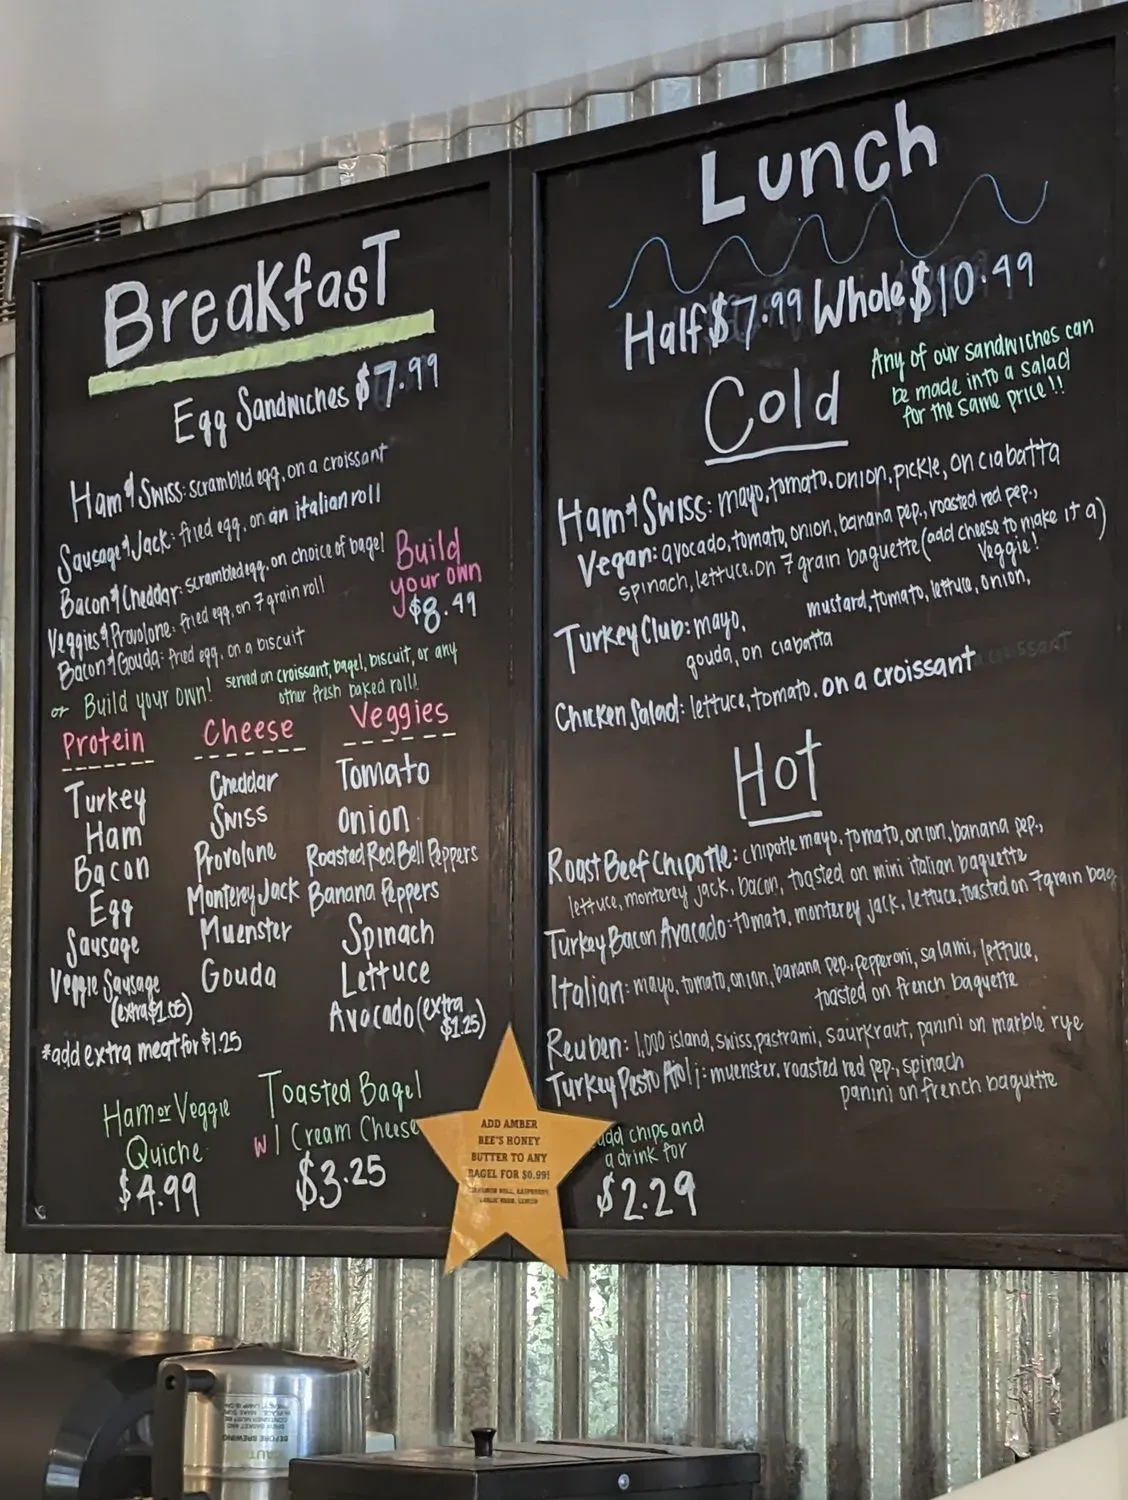 Breakfast
Egg Sandwiches $7.99
Ham & Swiss: scrambled egg, on a croissant
Sausage & Jack: fried egg, on an italian roll
Bacon & Cheddar: scrambled egg, on choice of bagel
Veggies & Provolone: fried egg, on 7 grain roll
Bacon & Gouda: fried egg, on a biscuit
Build
your own
$8.49
or Build your own! served on croissant, bagel, biscuit, or any
other fresh baked roll!
Protein
Turkey
Ham
Bacon
Egg
Sausage
Veggie Sausage
(extra $1.65)
*add extra meat for $1.25
Cheese
Cheddar
Swiss
Provolone
Monterey Jack
Muenster
Gouda
Veggies
Tomato
Onion
Roasted Red Bell Peppers
Banana Peppers
Spinach
Lettuce
Avocado (extra
$1.25)
Ham or Veggie
Quiche
$4.99
Toasted Bagel
w/ Cream Cheese
$3.25
ADD AMBER
BEE'S HONEY
BUTTER TO ANY
BAGEL FOR $0.99!
Lunch
Half $7.99 Whole $10.49
Cold
Any of our sandwiches can
be made into a salad
for the same price!!
Ham & Swiss: mayo, tomato, onion, pickle, on ciabatta
Vegan: avocado, tomato, onion, banana pep., roasted red pep.,
spinach, lettuce. on 7 grain baguette (add cheese to make it a)
Veggie!
Turkey Club: mayo, mustard, tomato, lettuce, onion,
gouda, on ciabatta
Chicken Salad: lettuce, tomato. on a croissant
Hot
Roast Beef Chipotle: chipotle mayo, tomato, onion, banana pep.,
lettuce, monterey jack, bacon, toasted on mini italian baguette
Turkey Bacon Avacado: tomato, monterey jack, lettuce, toasted on 7 grain bag
Italian: mayo, tomato, onion, banana pep., pepperoni, salami, lettuce,
toasted on french baguette
Reuben: 1,000 island, swiss, pastrami, saurkraut, panini on marble rye
Turkey Pesto Aioli: muenster, roasted red pep., spinach
panini on french baguette
add chips and
a drink for
$2.29
BEFORE BREWING